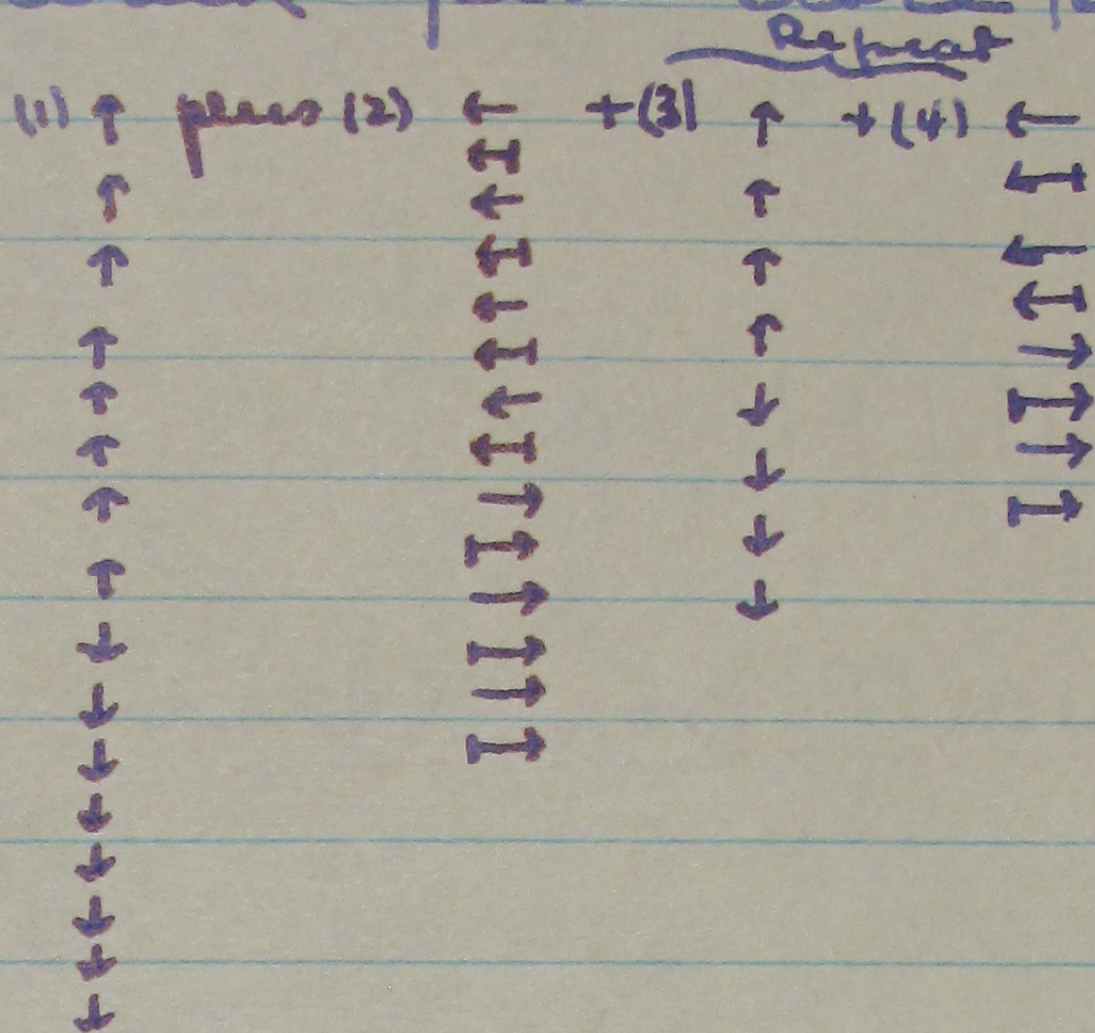 Repeat
(1) ↑ plus (2) ← +(3) ↑ +(4) ←